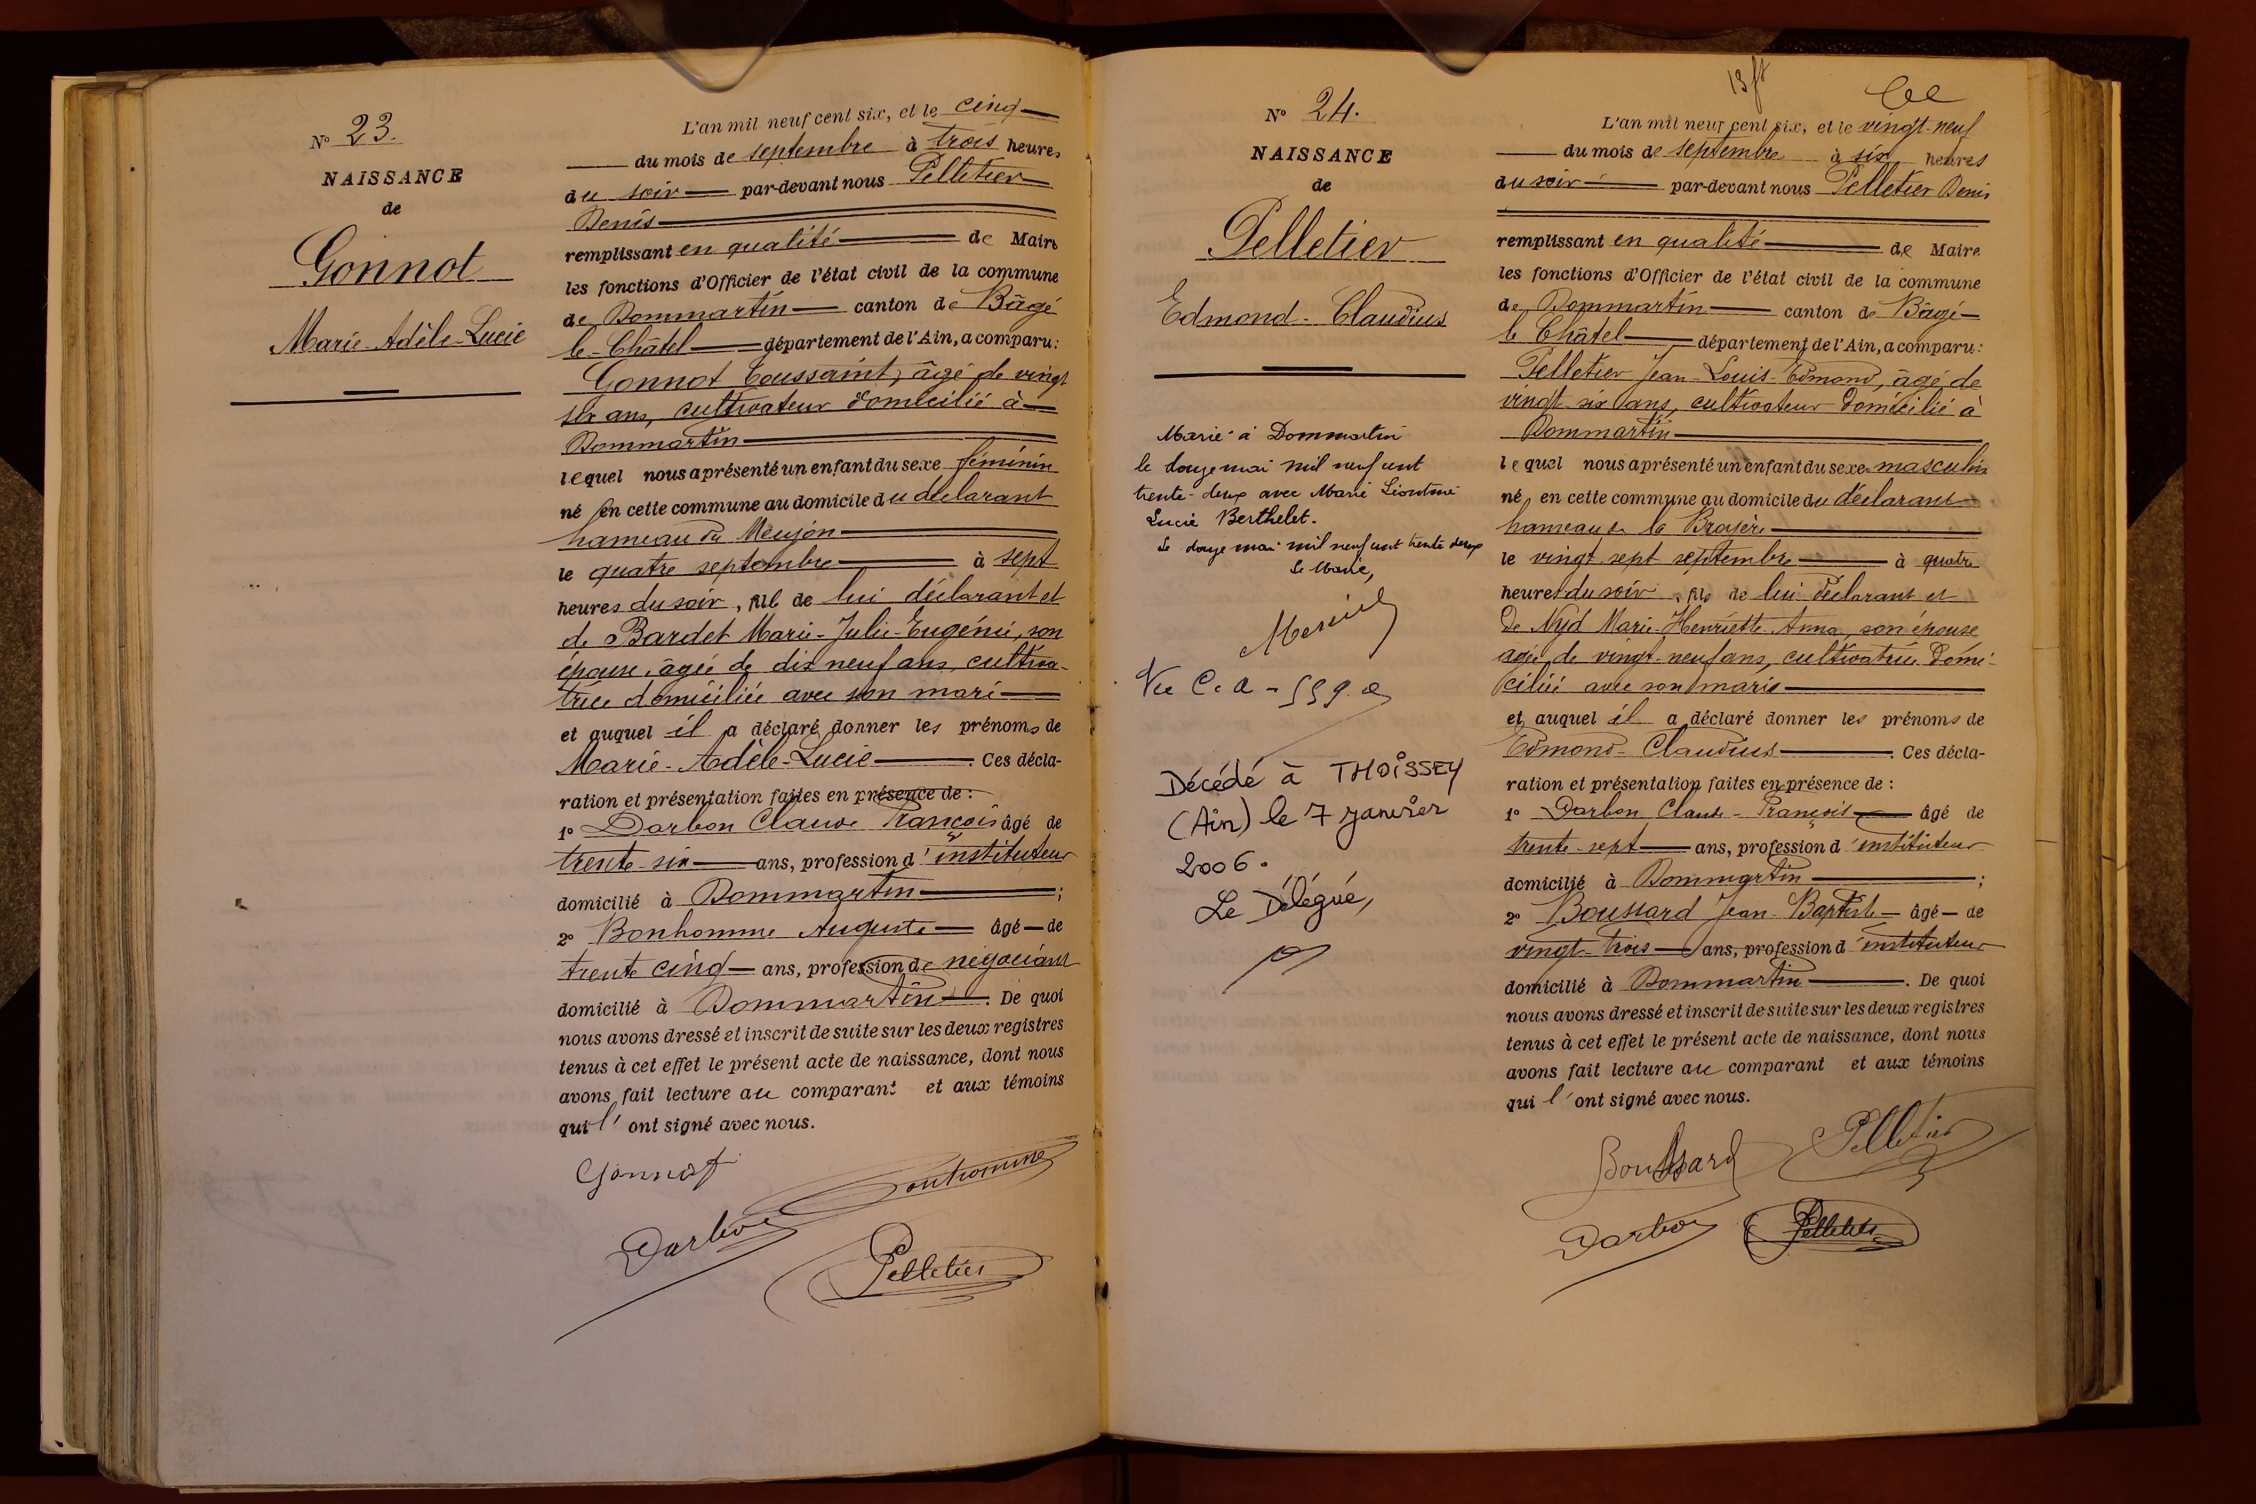 Nº 23.
NAISSANCE
de
Gonnot
Marie-Adèle-Lucie
L'an mil neuf cent six, et le cinq
du mois de septembre à trois heures
du soir par-devant nous Pelletier
Denis
remplissant en qualité de Maire
les fonctions d'Officier de l'état civil de la commune
de Dommartin canton de Bâgé
le-Châtel département de l'Ain, a comparu:
Gonnot Toussaint, âgé de vingt
six ans, cultivateur domicilié à
Dommartin
lequel nous a présenté un enfant du sexe féminin
né en cette commune au domicile du déclarant
hameau du Meujon
le quatre septembre à sept
heures du soir, fill de lui déclarant et
de Bardet Marie-Julie-Eugénie, son
épouse, âgée de dix neuf ans, cultiva-
trice domiciliée avec son mari
et auquel il a déclaré donner les prénoms de
Marie-Adèle-Lucie. Ces décla-
ration et présentation faites en présence de:
1º Darbon Claude François âgé de
trente-six ans, profession d'instituteur
domicilié à Dommartin;
2º Bonhomme Auguste âgé de
trente cinq ans, profession de négociant
domicilié à Dommartin. De quoi
nous avons dressé et inscrit de suite sur les deux registres
tenus à cet effet le présent acte de naissance, dont nous
avons fait lecture au comparant et aux témoins
qui l'ont signé avec nous.
Gonnot
Bonhomme
Darbon
Pelletier
Nº 24.
NAISSANCE
de
Pelletier
Edmond-Claudius
Marié à Dommartin
le douze mai mil neuf cent
trente-deux avec Marie Léontine
Lucie Berthelet.
Le douze mai mil neuf cent trente deux
Le Maire,
Décédé à THOISSEY
(Ain) le 7 janvier
2006.
Le Délégué,
L'an mil neuf cent six, et le vingt-neuf
du mois de septembre à six heures
du soir par-devant nous Pelletier Denis
remplissant en qualité de Maire
les fonctions d'Officier de l'état civil de la commune
de Dommartin canton de Bâgé-
le Châtel département de l'Ain, a comparu:
Pelletier Jean-Louis-Edmond, âgé de
vingt-six ans, cultivateur domicilié à
Dommartin
lequel nous a présenté un enfant du sexe masculin
né en cette commune au domicile du déclarant
hameau de la
le vingt-sept septembre à quatre
heures du soir, fils de lui déclarant et
de Nyd Marie-Henriette-Anna, son épouse
agée de vingt-neuf ans, cultivatrice domi-
ciliée avec son maris
et auquel il a déclaré donner les prénoms de
Edmond-Claudius. Ces décla-
ration et présentation faites en présence de:
1º Darbon Claude-François âgé de
trente-sept ans, profession d'instituteur
domicilié à Dommartin;
2º Boussard Jean-Baptiste âgé de
vingt-trois ans, profession d'instituteur
domicilié à Dommartin. De quoi
nous avons dressé et inscrit de suite sur les deux registres
tenus à cet effet le présent acte de naissance, dont nous
avons fait lecture au comparant et aux témoins
qui l'ont signé avec nous.
Boussard
Pelletier
Darbon
Pelletier